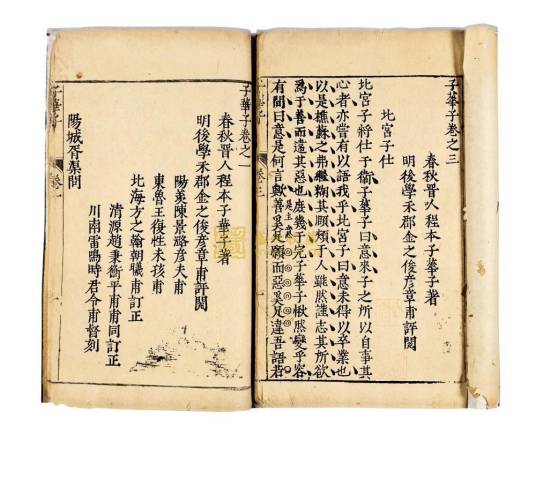 子華子卷之三
春秋晉人程本子華子著
明後學禾郡金之俊彥章甫評閱
北宮子仕
北宮子將仕于衞子華子曰意來子之所以自事其
心者亦嘗有以語我乎北宮子曰意未得以卒業也
以是樵蘇之弗繼糊其頤頰于人雖然謹志其所欲
爲于善而違其惡也庶幾于完子華子愀然變乎容
是主意
有間曰意是何言歟善奚足願而惡奚足違吾語若
子華子 卷三
子華子卷之一
春秋晉人程本子華子著
明後學禾郡金之俊彥章甫評閱
陽羨陳景潞彥夫甫
東魯王復性未孩甫
北海方之翰朝驥甫訂正
清源趙秉衡平甫甫同訂正
川南雷鳴時君令甫督刻
陽城胥渠問
子華子 卷一